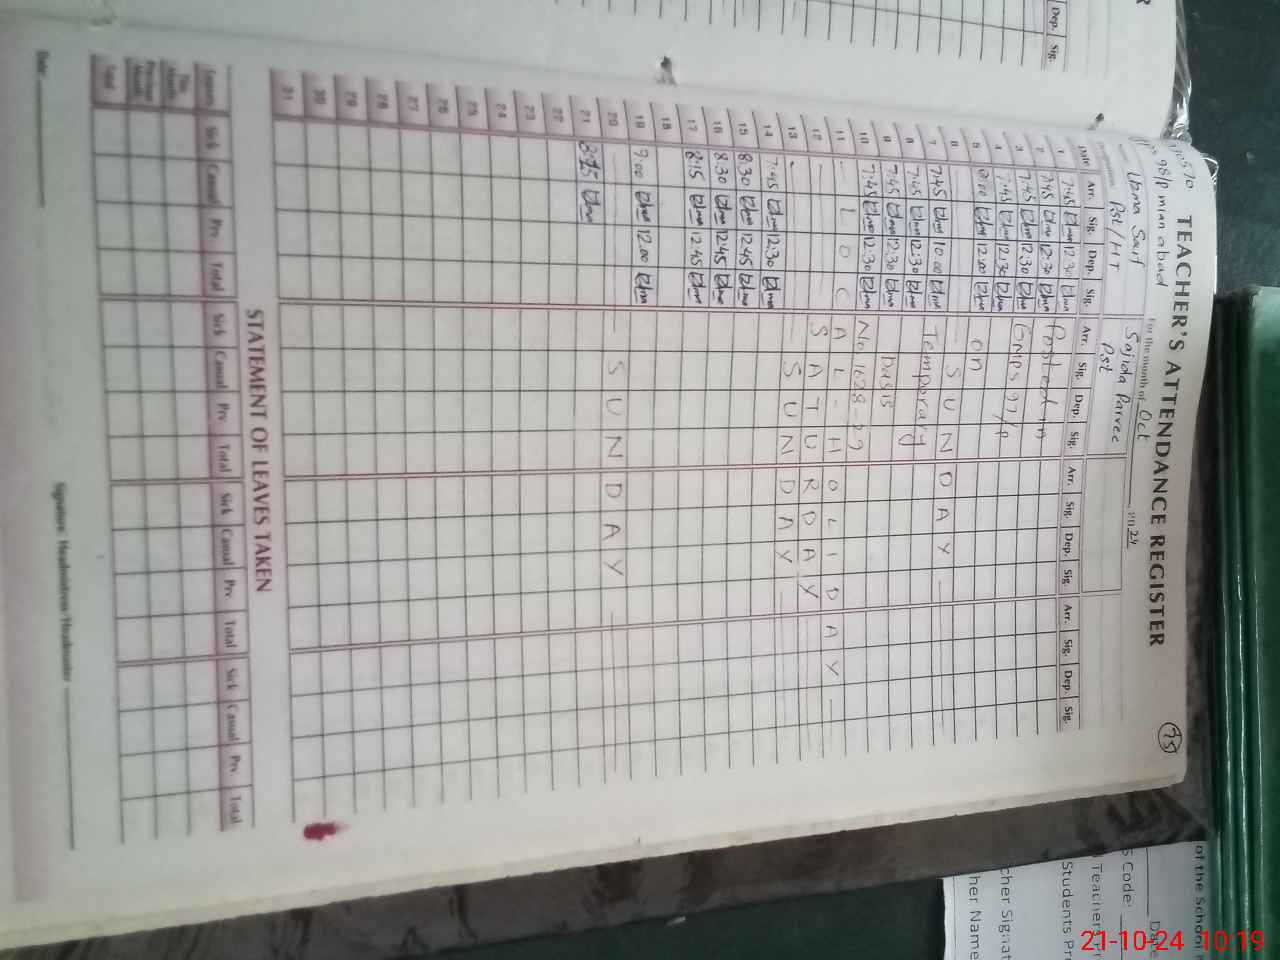 TEACHER'S ATTENDANCE REGISTER
98/p mian abad
For the month of Oct 2024
95
Pst/HT
Sajida Parvee
Pst
Date Arr. Sig. Dep. Sig. Arr. Sig. Dep. Sig. Arr. Sig. Dep. Sig. Arr. Sig. Dep. Sig.
1 7:45 12:30
2 7:45 12:30 Posted in
3 7:45 12:30 Gmps 97/p
4 7:45 12:30
5 8:00 12:00 on
6 SUNDAY
7 7:45 10:00 Temporary
8 7:45 12:30
9 7:45 12:30 basis
10 7:45 12:30 No, 1628-29
11 LOCAL-HOLIDAY
12 SATURDAY
13 SUNDAY
14 7:45 12:30
15 8:30 12:45
16 8:30 12:45
17 8:15 12:45
18
19 9:00 12:00
20 SUNDAY
21
22
23
24
25
26
27
28
29
30
31
STATEMENT OF LEAVES TAKEN
Leaves Sick Casual Prv. Total Sick Casual Prv Total Sick Casual Prv. Total Sick Casual Prv Total
This Month
Previous Month
Total
Date
Signature Headmistress/Headmaster
Dep. Sig.
of the School
Code:
Teacher
Students Pre
cher Signat
her Name
21-10-24 10:19